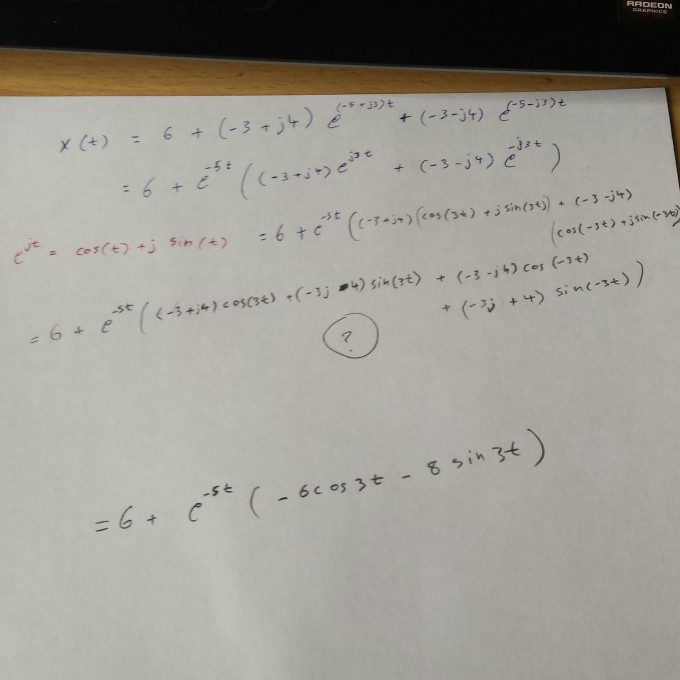 RADEON
GRAPHICS
x(t) = 6 + (-3+j4) e^(-5+j3)t + (-3-j4) e^(-5-j3)t
= 6 + e^-5t ((-3+j4) e^j3t + (-3-j4) e^-j3t)
e^jt = cos(t) + j sin(t) = 6 + e^-5t ((-3+j4)(cos(3t) + j sin(3t)) + (-3-j4)
(cos(-3t) + j sin(-3t))
= 6 + e^-5t ((-3+j4) cos(3t) + (-3j -4) sin(3t) + (-3-j4) cos(-3t)
+ (-3j + 4) sin(-3t))
?
= 6 + e^-5t (-6cos3t - 8 sin 3t)